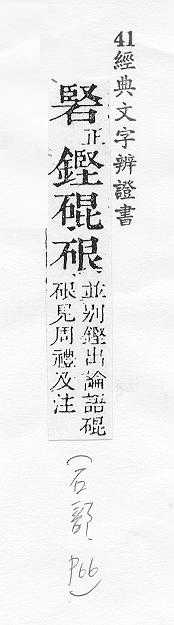 41經典文字辨證書
硻正鏗䃂硍並別鏗出論語䃂
硍見周禮及注
(石部, P66)